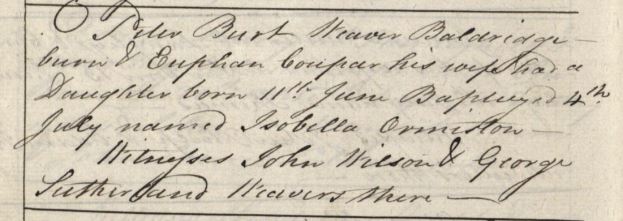 Peter Burt Weaver Baldridge-
burn & Euphan Coupar his wife had a
Daughter born 11th June Baptized 4th
July named Isobella Ormiston —
Witnesses John Wilson & George
Sutherland Weavers there —